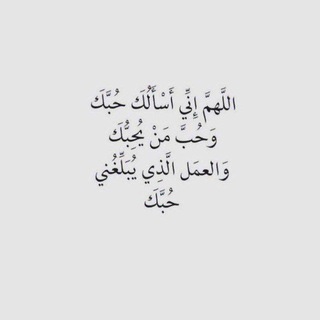 اللَّهمَّ إِنِّي أَسْأَلُكَ حُبَّكَ
وَحُبَّ مَنْ يُحِبُّكَ
وَالعمَل الَّذِي يُبَلِّغُني
حُبَّكَ